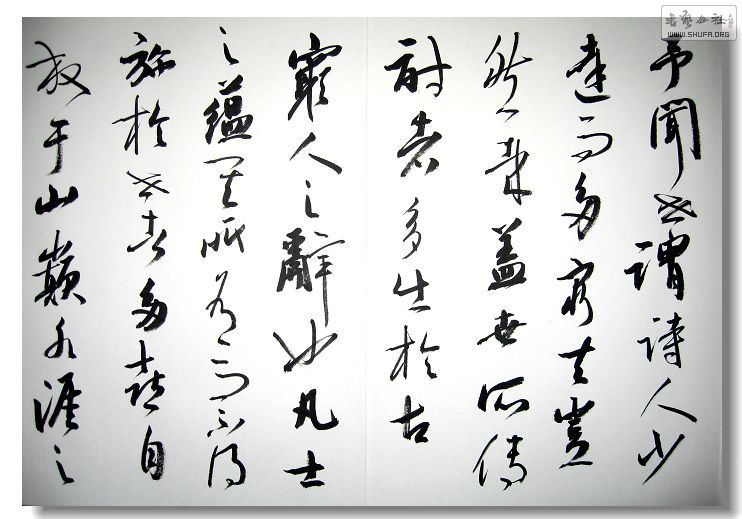 予聞世謂詩人少
達而多窮夫豈
然哉蓋世所傳
詩者多出於古
窮人之辭也凡士
之蘊其所有而不得
施於世者多喜自
放于山巔水涯之
书艺公社
WWW.SHUFA.ORG